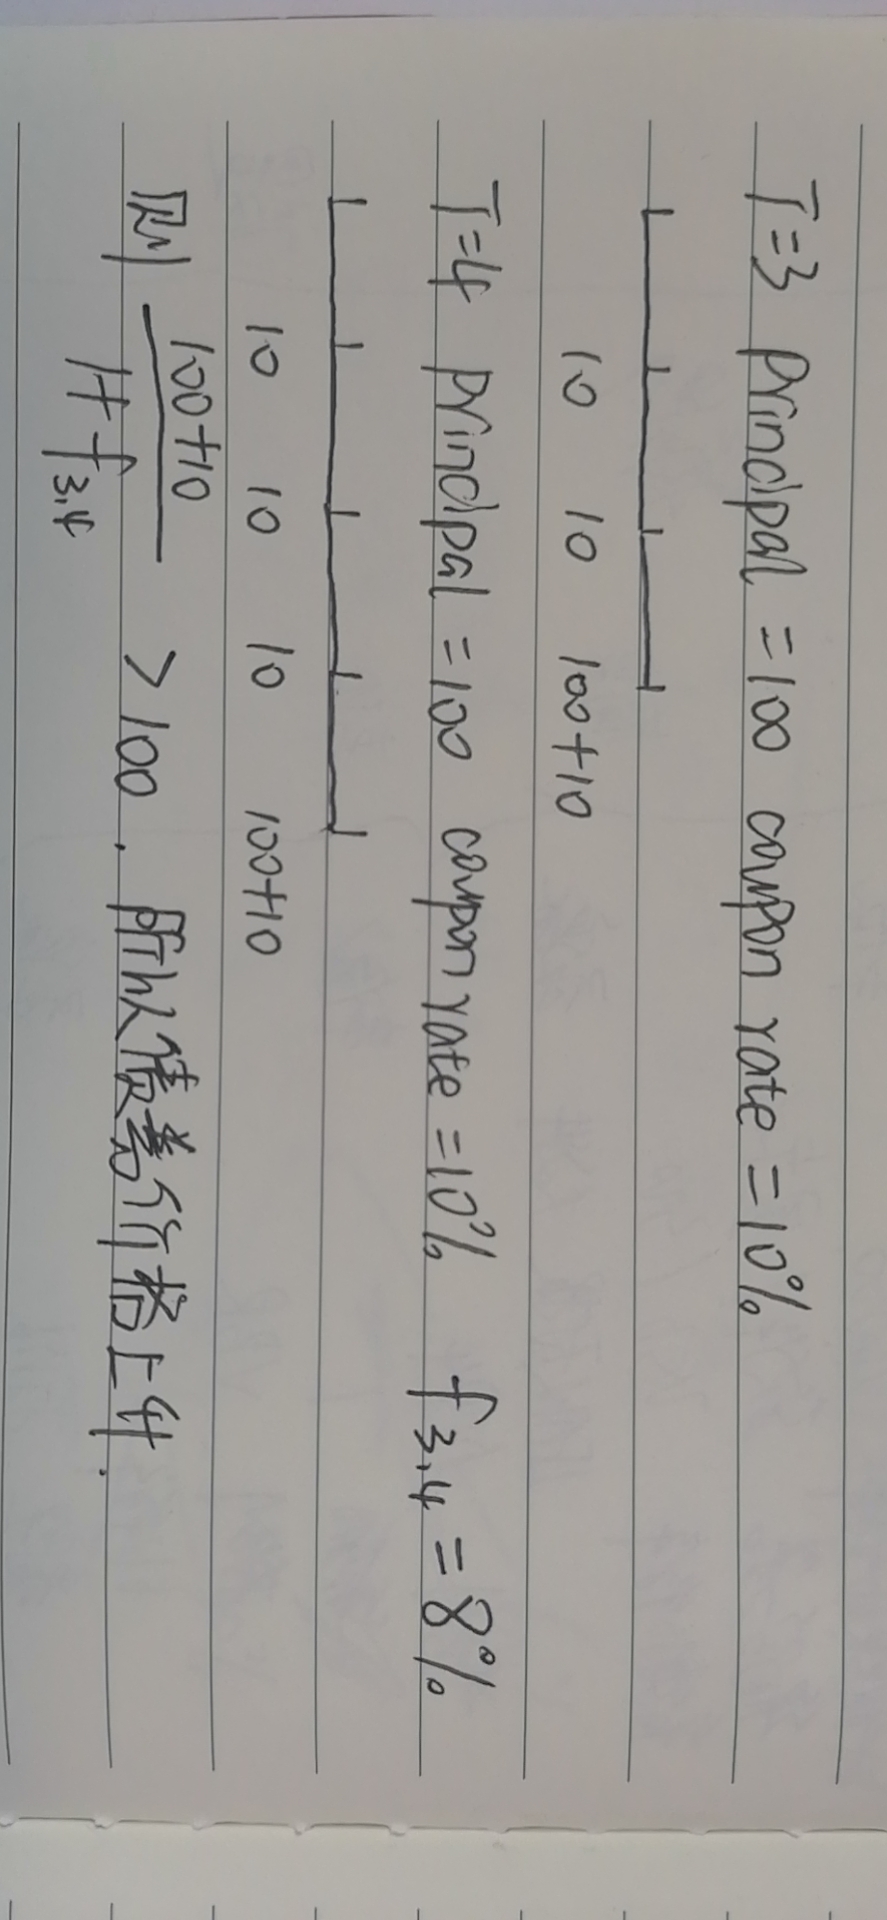 T=3 principal =100 coupon rate =10%
10 10 100+10
T=4 principal =100 coupon rate =10% f3,4 =8%
10 10 10 100+10
则 100+10
1+f3,4
>100. 所以债券价格上升.